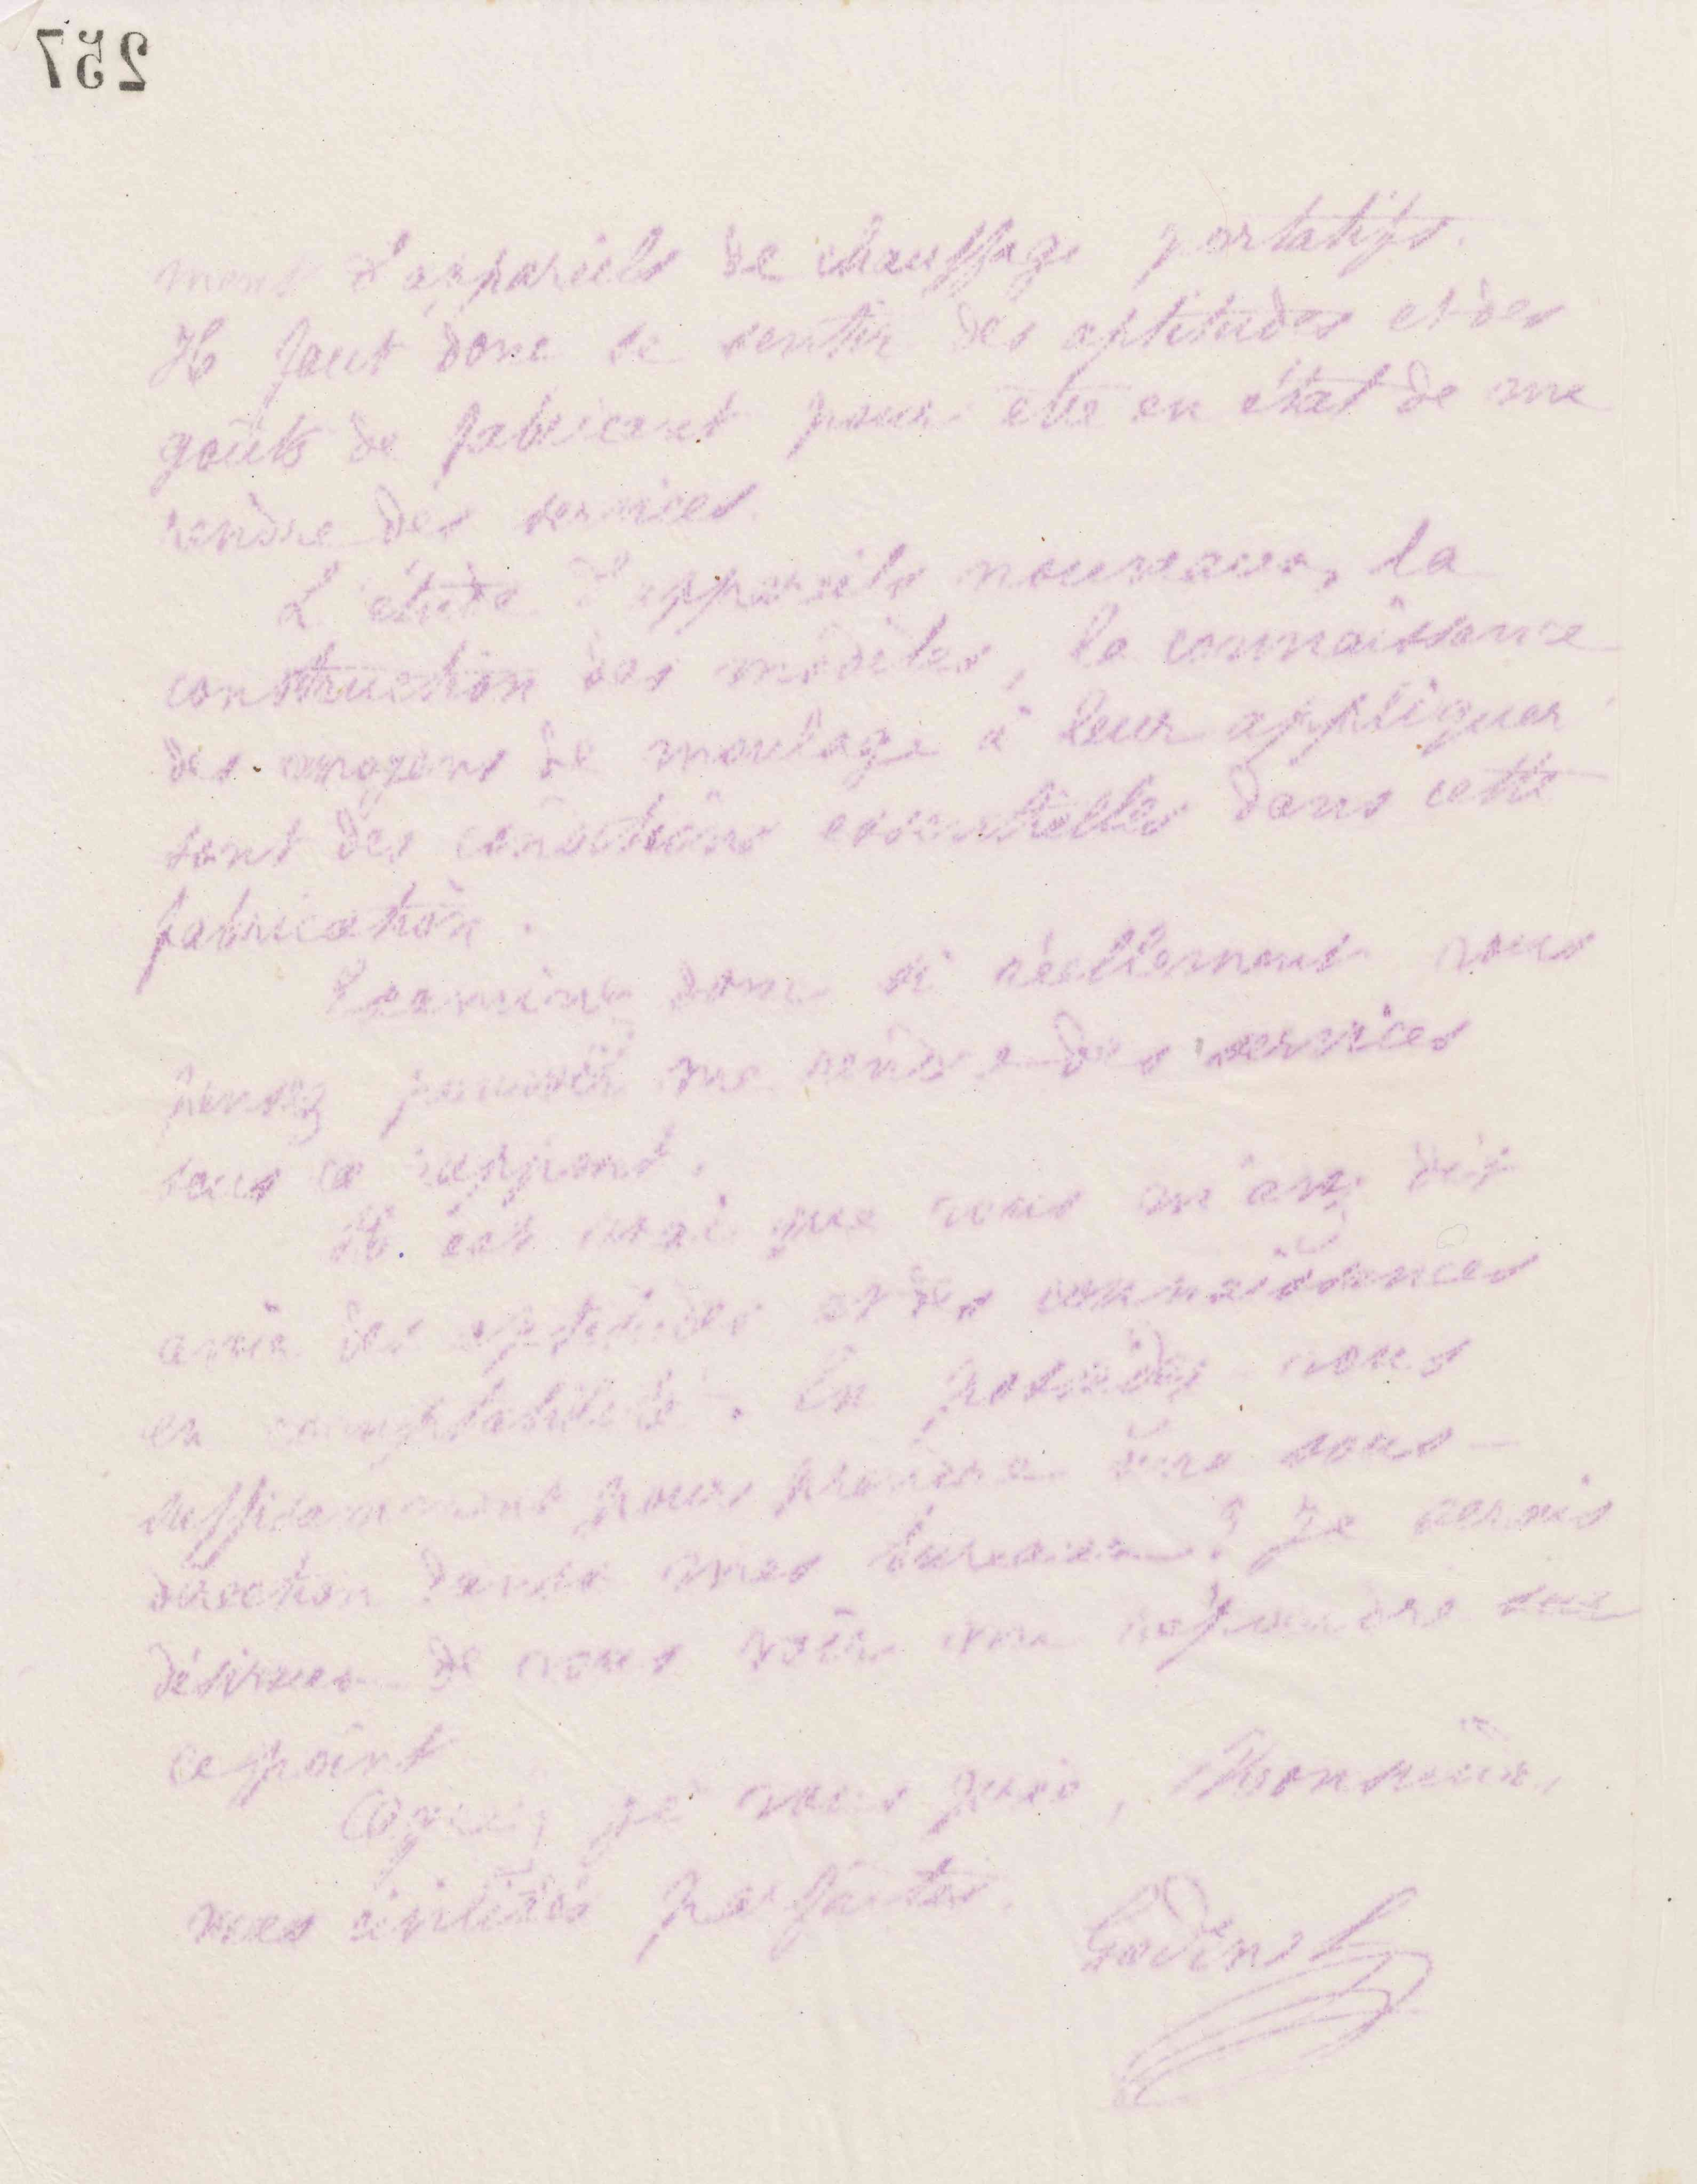 257
ment d'appareils de chauffage portatifs.
Il faut donc se sentir des aptitudes et des
goûts de fabricant pour être en état de me
rendre des services.
L'étude d'appareils nouveaux, la
construction des modèles, la connaissance
des moyens de moulage à leur appliquer
sont des conditions essentielles dans cette
fabrication.
Examinez donc si réellement vous
pensez pouvoir me rendre des services
sous ce rapport.
Il est vrai que vous m'avez dit
avoir des aptitudes et des connaissances
en comptabilité. En possédez-vous
suffisamment pour prendre une sous-
direction dans mes bureaux ? Je serais
désireux de vous voir me répondre sur
ce point
Agréez, je vous prie, Monsieur,
mes civilités parfaites.
Godin